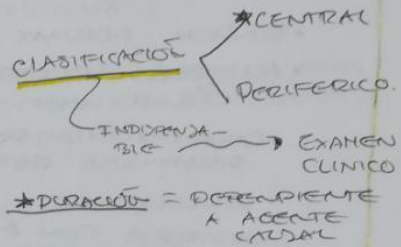 *CENTRAL
CLASIFICACIÓN
PERIFERICO.
INDISPENSA-
BLE → EXAMEN
CLINICO
*DURACIÓN = DEPENDIENTE
A AGENTE
CAUSAL